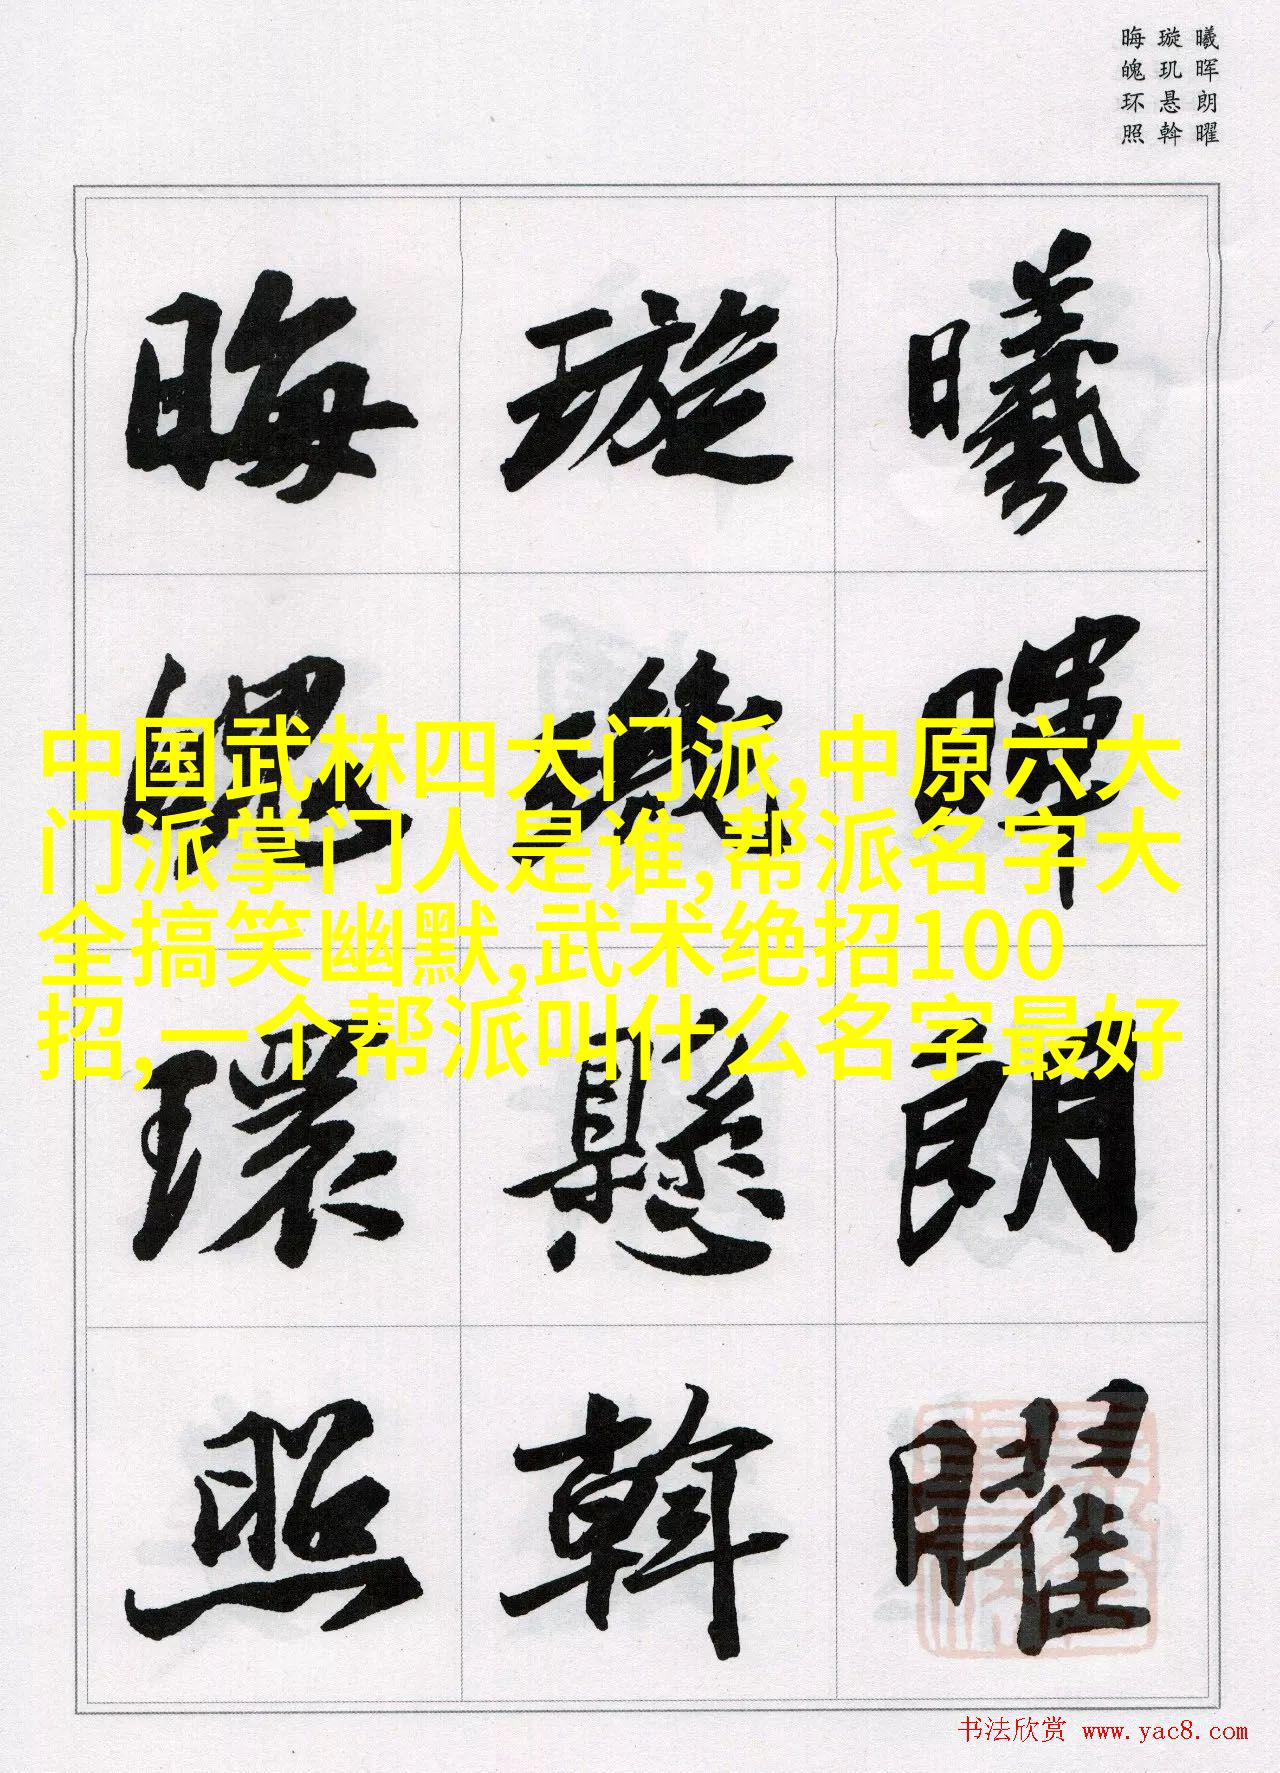 曦晖朗曜
璇玑悬斡
晦魄环照
曦
暉
朗
曜
璇
璣
懸
斡
晦
魄
環
照
中国武林四大门派,中原六大
门派掌门人是谁,帮派名字大
全搞笑幽默,武术绝招100
招,一个帮派叫什么名字最好
书法欣赏 www.yac8.com